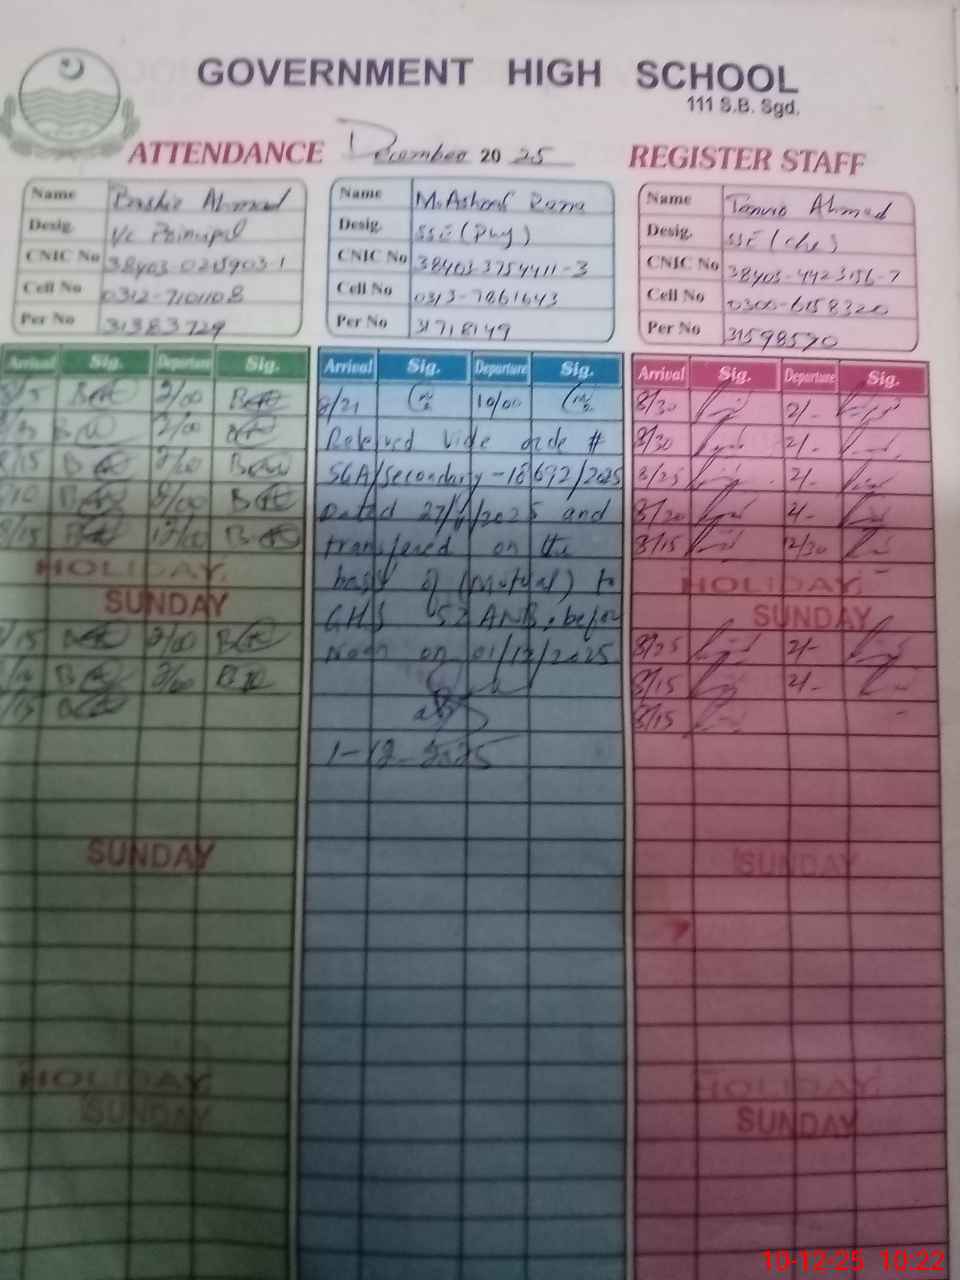 GOVERNMENT HIGH SCHOOL
111 S.B. Sgd.
ATTENDANCE December 20 25 REGISTER STAFF
Name Bashir Ahmad
Desig. V/c Principal
CNIC No
Cell No
Per No 31383729
Name M. Ashraf Rana
Desig. SSE (Phy)
CNIC No 38403-3754411-3
Cell No 0313-7861643
Per No 31718149
Name Tanvir Ahmad
Desig. SSE (che)
CNIC No 38403-4423156-7
Cell No 0300-6158320
Per No 31598570
Arrival Sig. Departure Sig.
2/00
2/00
8/15 2/00
HOLIDAY
SUNDAY
8/15 2/00
2/00
SUNDAY
HOLIDAY
SUNDAY
Arrival Sig. Departure Sig.
8/21 10/00
Releived vide orde #
SGA/secondary-18692/2025
Dated 27/11/2025 and
transfered on the
basis of (mutual) to
GHS 52 ANB, before
Noon on 01/12/2025
1-12-2025
Arrival Sig. Departure Sig.
8/30 2/-
8/30 2/-
8/25 2/-
8/20 2/-
8/15 12/30
HOLIDAY
SUNDAY
8/25 2/-
8/15 2/-
8/15
SUNDAY
HOLIDAY
SUNDAY
10-12-25 10:22